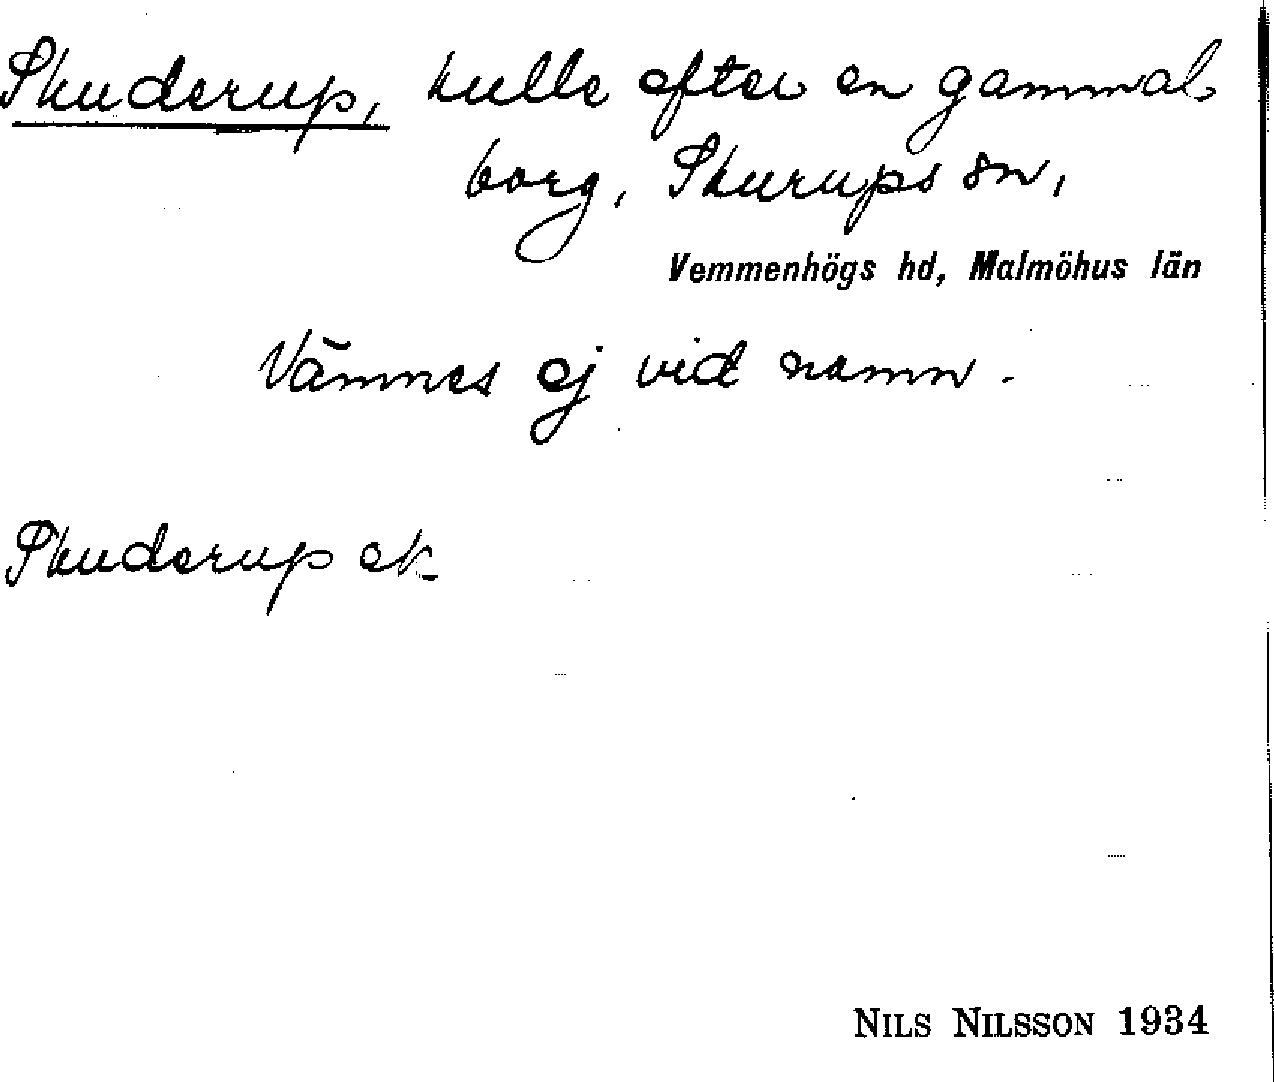 Skuderup, kulle efter en gammal
borg, Skurups sn,
Vemmenhögs hd, Malmöhus län
Vämnes ej vid namn.
Skuderup ek
NILS NILSSON 1934